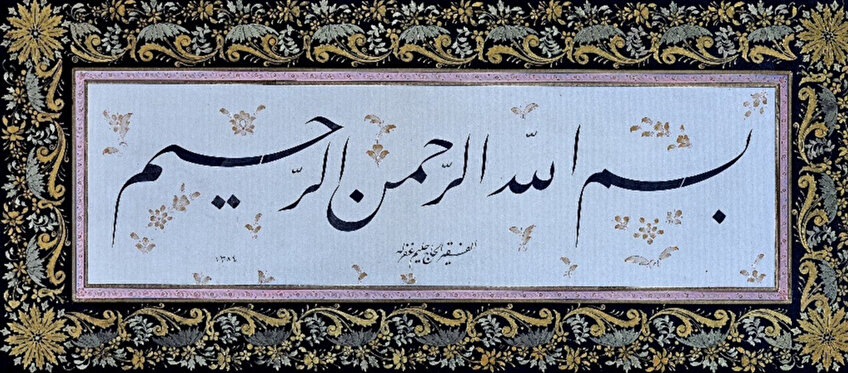 بسم الله الرّحمن الرّحيم
الفقير الحاج حليم غفر له
١٣٨٤